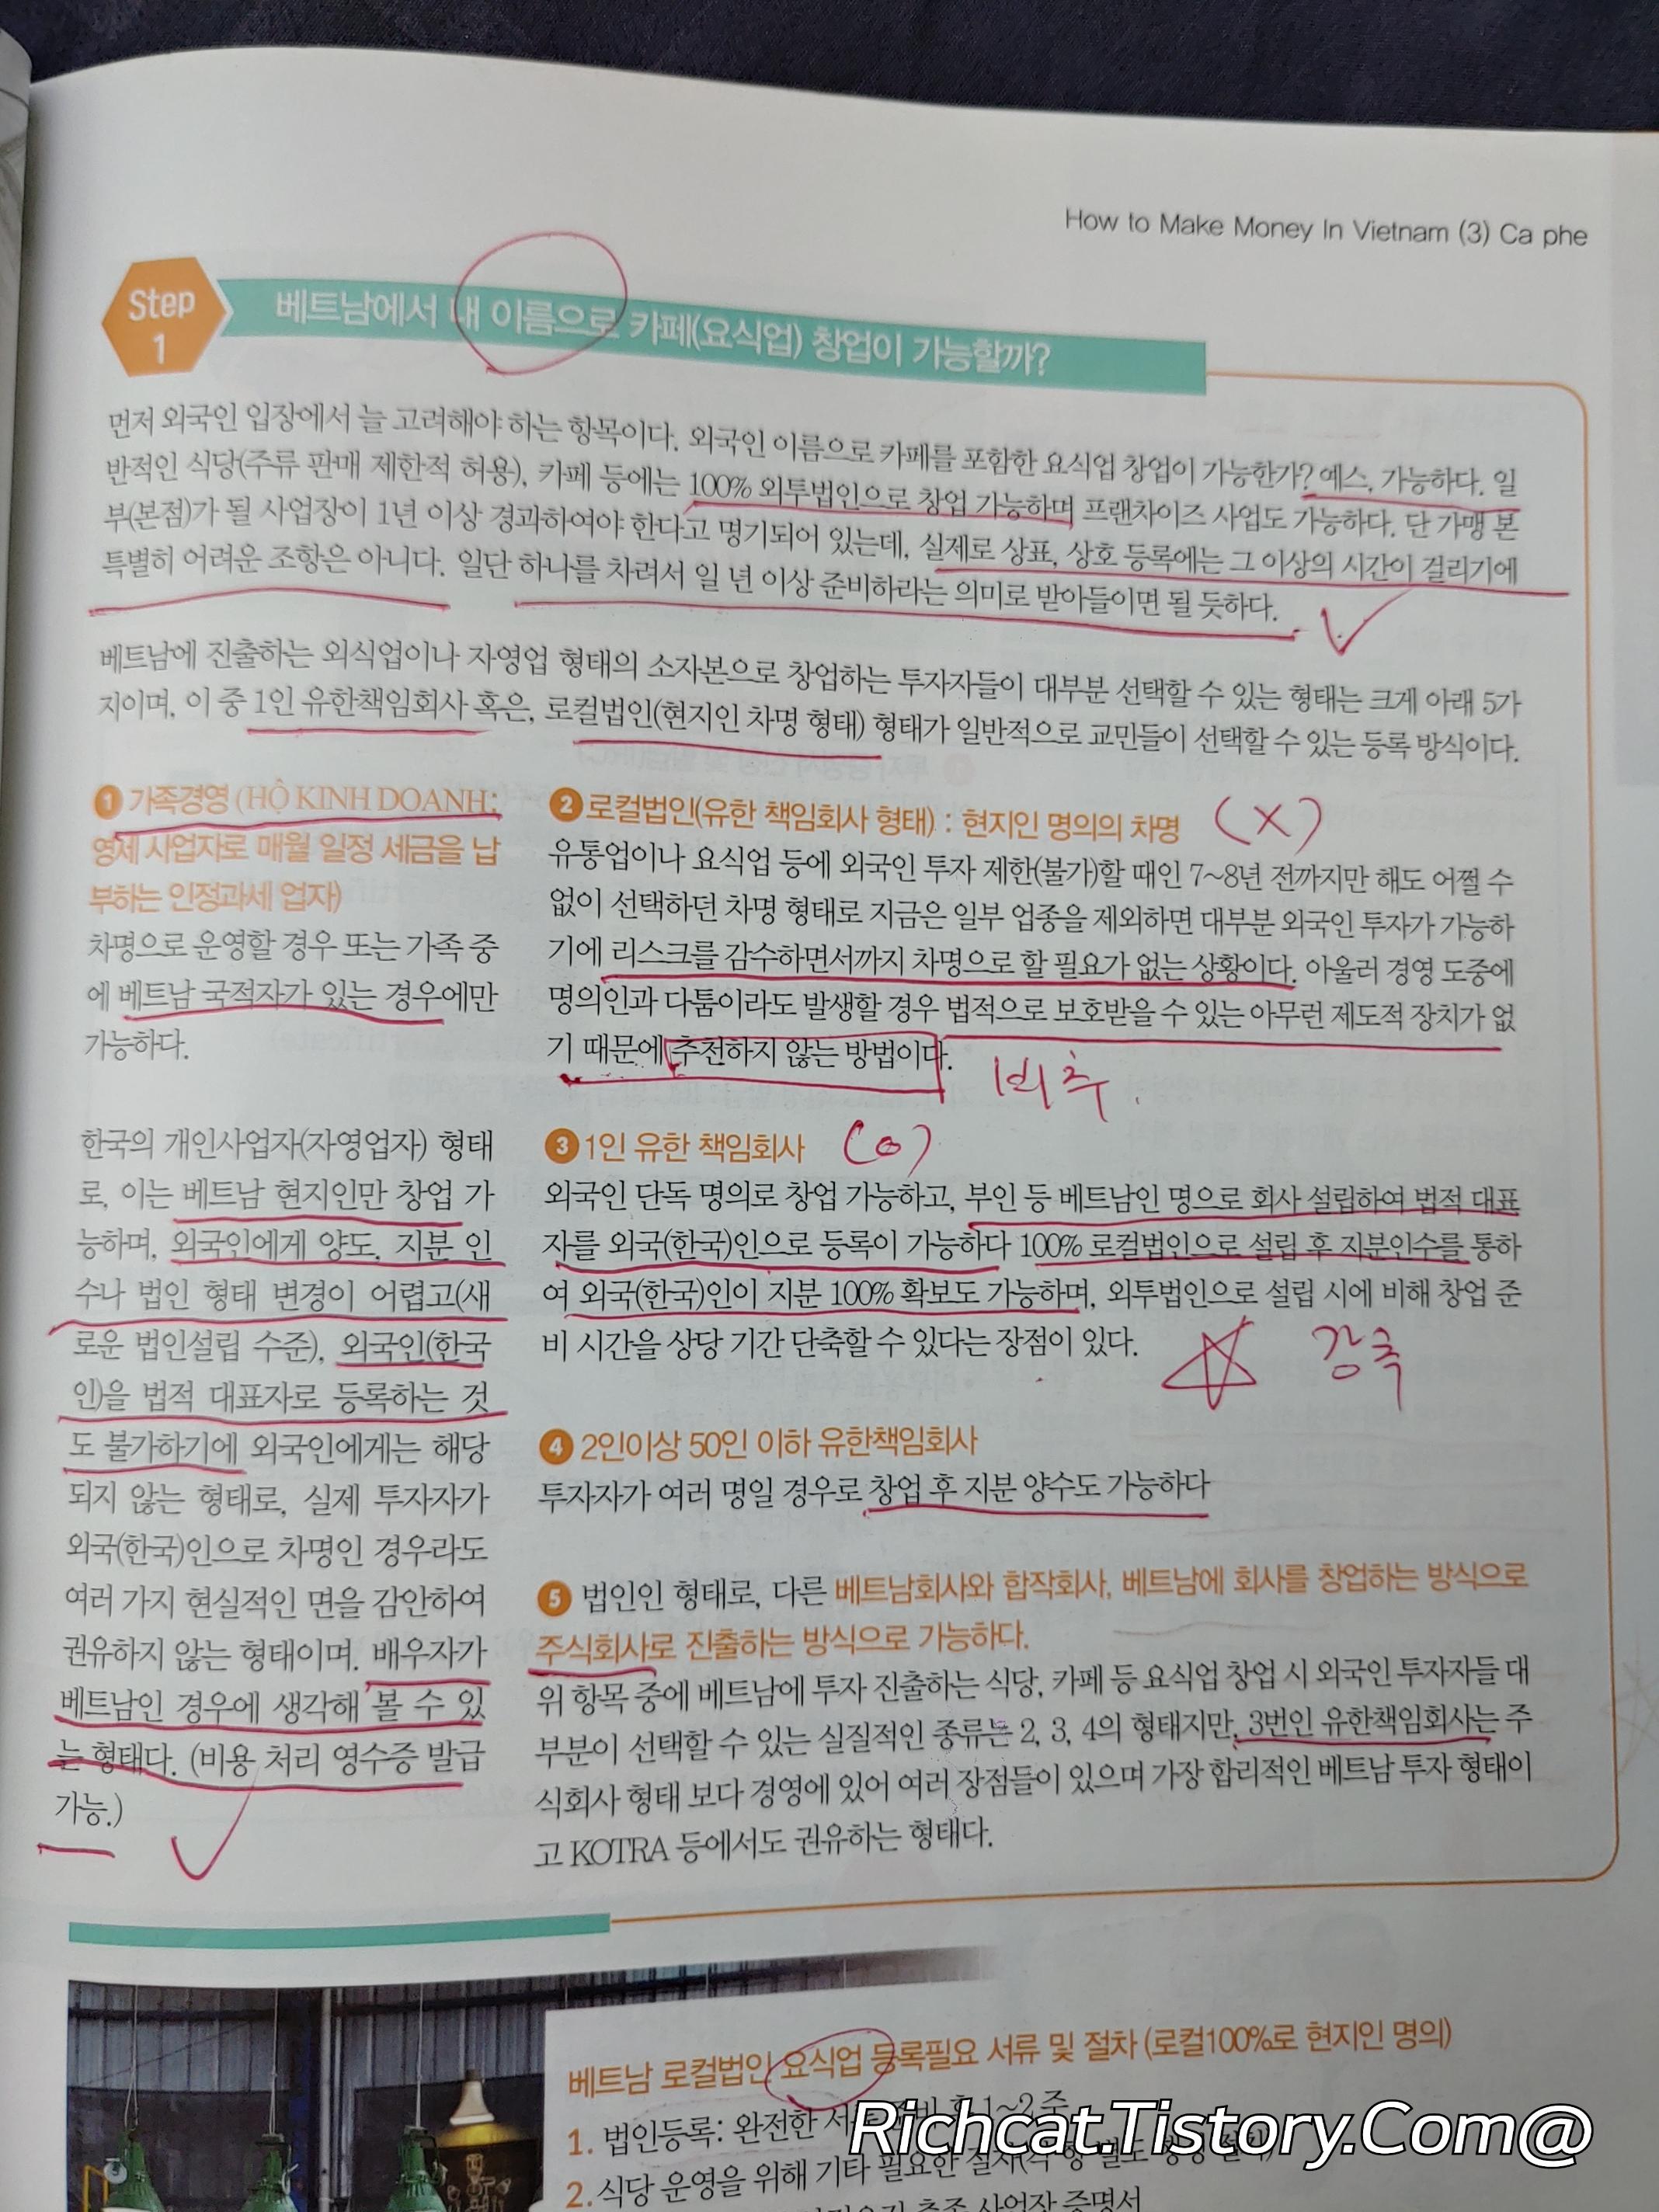 How to Make Money In Vietnam (3) Ca phe
Step
1
베트남에서 내 이름으로 카페(요식업) 창업이 가능할까?
먼저 외국인 입장에서 늘 고려해야 하는 항목이다. 외국인 이름으로 카페를 포함한 요식업 창업이 가능한가? 예스, 가능하다. 일
반적인 식당(주류 판매 제한적 허용), 카페 등에는 100% 외투법인으로 창업 가능하며 프랜차이즈 사업도 가능하다. 단 가맹 본
부(본점)가 될 사업장이 1년 이상 경과하여야 한다고 명기되어 있는데, 실제로 상표, 상호 등록에는 그 이상의 시간이 걸리기에
특별히 어려운 조항은 아니다. 일단 하나를 차려서 일 년 이상 준비하라는 의미로 받아들이면 될 듯하다.
베트남에 진출하는 외식업이나 자영업 형태의 소자본으로 창업하는 투자자들이 대부분 선택할 수 있는 형태는 크게 아래 5가
지이며, 이 중 1인 유한책임회사 혹은, 로컬법인(현지인 차명 형태) 형태가 일반적으로 교민들이 선택할 수 있는 등록 방식이다.
1 가족경영 (HỘ KINH DOANH:
영세 사업자로 매월 일정 세금을 납
부하는 인정과세 업자)
차명으로 운영할 경우 또는 가족 중
에 베트남 국적자가 있는 경우에만
가능하다.
한국의 개인사업자(자영업자) 형태
로, 이는 베트남 현지인만 창업 가
능하며, 외국인에게 양도, 지분 인
수나 법인 형태 변경이 어렵고(새
로운 법인설립 수준), 외국인(한국
인)을 법적 대표자로 등록하는 것
도 불가하기에 외국인에게는 해당
되지 않는 형태로, 실제 투자자가
외국(한국)인으로 차명인 경우라도
여러 가지 현실적인 면을 감안하여
권유하지 않는 형태이며. 배우자가
베트남인 경우에 생각해 볼 수 있
는 형태다. (비용 처리 영수증 발급
가능.)
2 로컬법인(유한 책임회사 형태) : 현지인 명의의 차명 (X)
유통업이나 요식업 등에 외국인 투자 제한(불가)할 때인 7~8년 전까지만 해도 어쩔 수
없이 선택하던 차명 형태로 지금은 일부 업종을 제외하면 대부분 외국인 투자가 가능하
기에 리스크를 감수하면서까지 차명으로 할 필요가 없는 상황이다. 아울러 경영 도중에
명의인과 다툼이라도 발생할 경우 법적으로 보호받을 수 있는 아무런 제도적 장치가 없
기 때문에 추천하지 않는 방법이다. 비추.
3 1인 유한 책임회사 (O)
외국인 단독 명의로 창업 가능하고, 부인 등 베트남인 명으로 회사 설립하여 법적 대표
자를 외국(한국)인으로 등록이 가능하다 100% 로컬법인으로 설립 후 지분인수를 통하
여 외국(한국)인이 지분 100% 확보도 가능하며, 외투법인으로 설립 시에 비해 창업 준
비 시간을 상당 기간 단축할 수 있다는 장점이 있다. 강추
4 2인이상 50인 이하 유한책임회사
투자자가 여러 명일 경우로 창업 후 지분 양수도 가능하다
5 법인인 형태로, 다른 베트남회사와 합작회사, 베트남에 회사를 창업하는 방식으로
주식회사로 진출하는 방식으로 가능하다.
위 항목 중에 베트남에 투자 진출하는 식당, 카페 등 요식업 창업 시 외국인 투자자들 대
부분이 선택할 수 있는 실질적인 종류는 2, 3, 4의 형태지만, 3번인 유한책임회사는 주
식회사 형태 보다 경영에 있어 여러 장점들이 있으며 가장 합리적인 베트남 투자 형태이
고 KOTRA 등에서도 권유하는 형태다.
베트남 로컬법인 요식업 등록필요 서류 및 절차 (로컬100%로 현지인 명의)
1. 법인등록: 완전한 서류 준비 후 1~2 주
2. 식당 운영을 위해 기타 필요한 절차
사업장 증명서
Richcat.Tistory.Com@